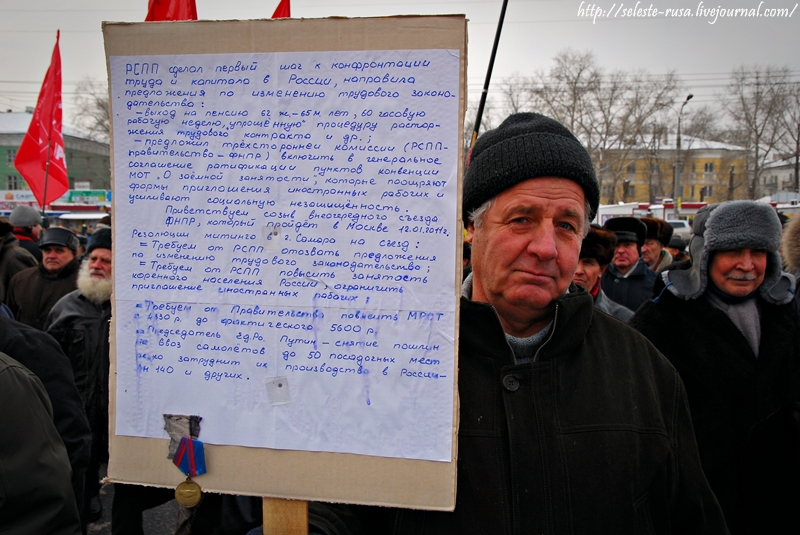 http://seleste-rusa.livejournal.com/
РСПП сделал первый шаг к конфронтации
труда и капитала в России, направила
предложения по изменению трудового законо-
дательства:
– выход на пенсию 62 ж.–65 м лет, 60 часовую
рабочую неделю, "упрощённую" процедуру растор-
жения трудового контракта и др.;
– предложил трёхсторонней комиссии (РСПП-
правительство – ФНПР) включить в генеральное
соглашение ратификации пунктов конвенции
МОТ. О заёмной занятости", которые поощряют
формы приглашения иностранных рабочих и
усиливают социальную незащищённость.
Приветствуем созыв внеочередного съезда
ФНПР, который пройдёт в Москве 12.01.2011г.
Резолюции митинга в г. Самара на съезд:
= Требуем от РСПП отозвать предложения
по изменению трудового законодательства;
= Требуем от РСПП повысить занятость
коренного населения России, ограничить
приглашение иностранных рабочих;
= Требуем от Правительства повысить МРОТ
с 4330 р. до фактического 5600 р.
Председатель Ед.Ро. Путин – снятие пошлин
на ввоз самолётов до 50 посадочных мест
затруднит их производство в России-
140 и других.